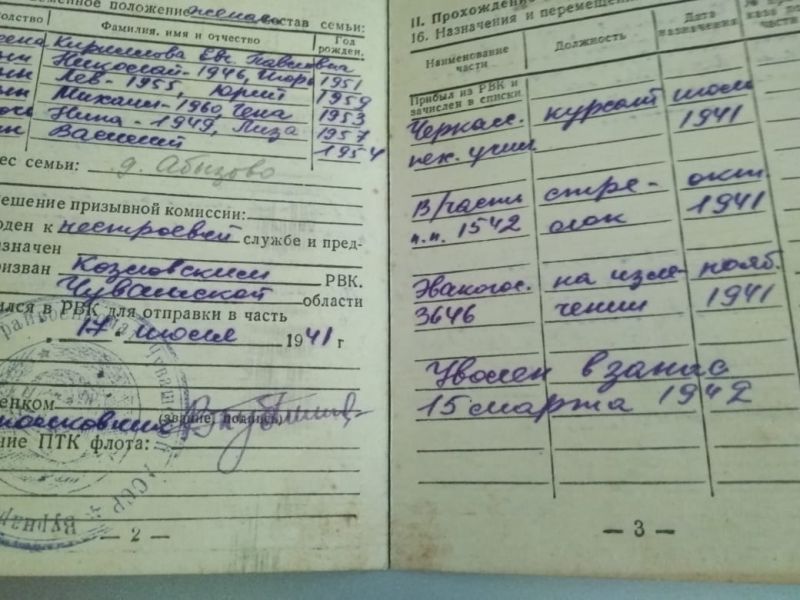 менное положение женат остав семьи:
дство
Фамилия, имя и отчество
Год рожден.
Кириллова Евг Павловна
Николай-1946, Игорь 1951
Лев-1955, Юрий 1959
Михаил-1960, Гена 1953
Нина-1949, Лиза 1957
Василий 1954
ес семьи: д. Абызово
ешение призывной комиссии:
оден к нестроевой службе и пред-
азначен
ризван Козловским РВК.
Чувашской области
ился в РВК для отправки в часть
17 июля 1941 г
енком
(звание, подпись)
ние ПТК флота:
— 2 —
II. Прохождени
16. Назначения и перемещени
Наименование части
Должность
Дата назначения
Прибыл из РВК и
зачислен в списки
Черкасс. курсант июль
пех. учил. 1941
В/часть стре- окт.
п.п. 1542 лок 1941
Эвакогос. на изле- нояб.
3646 чении 1941
Уволен в запас
15 марта 1942
— 3 —